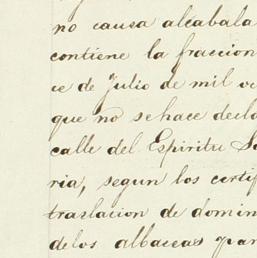 no causa alcabala
contiene la fraccion
ce de Julio de mil oc
que no se hace decla
calle del Espiritu Sa
ria, segun los certif
traslacion de domin
de los albaceas par